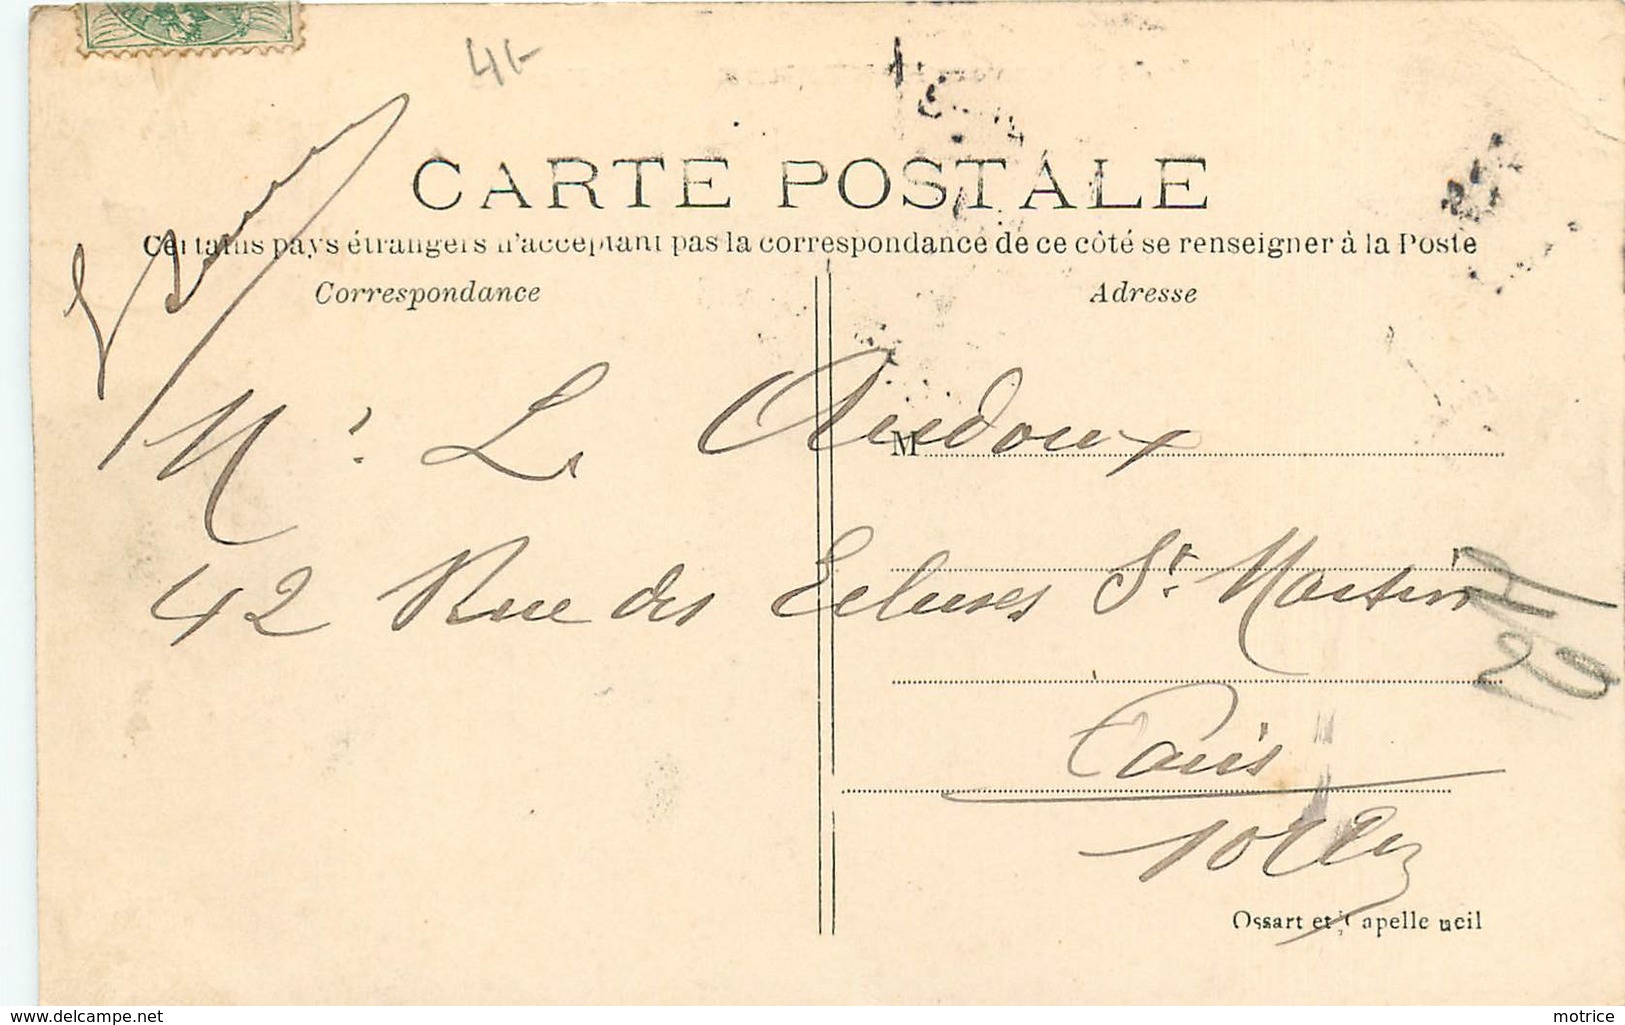 41-
CARTE POSTALE
Certains pays étrangers n'acceptant pas la correspondance de ce côté se renseigner à la Poste
Correspondance
Adresse
Mr. L. Audoux
M
42 Rue des Ecluses St. Martin
Paris
10
Ossart et Capelle
delcampe.net
motrice